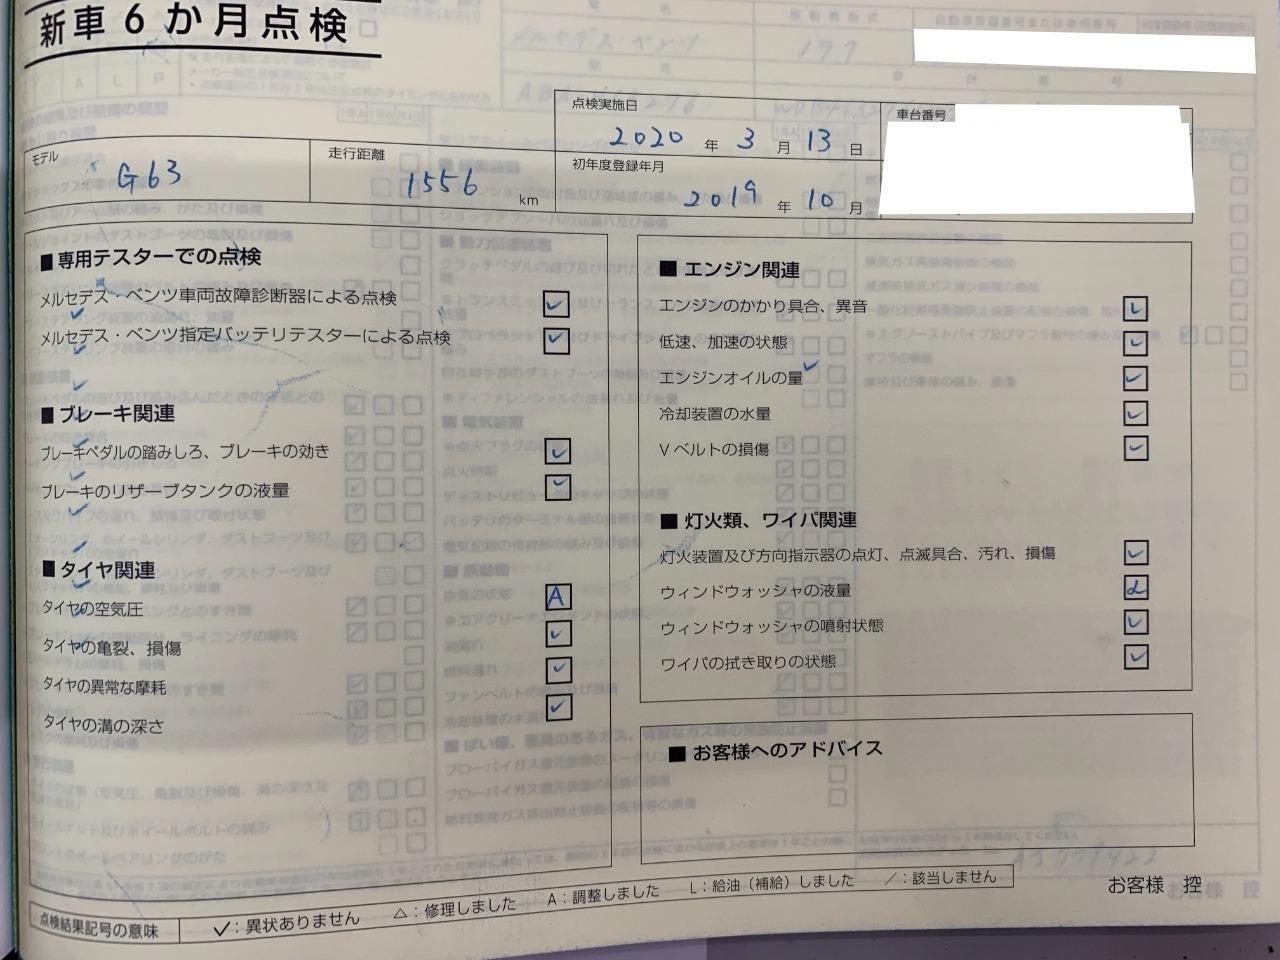 新車6か月点検
点検実施日
2020 年 3 月 13 日
車台番号
モデル
G63
走行距離
1556 km
初年度登録年月
2019 年 10 月
■ 専用テスターでの点検
メルセデス・ベンツ車両故障診断器による点検 ✓
メルセデス・ベンツ指定バッテリテスターによる点検 ✓
■ ブレーキ関連
ブレーキペダルの踏みしろ、ブレーキの効き ✓
ブレーキのリザーブタンクの液量 ✓
■ タイヤ関連
タイヤの空気圧 A
タイヤの亀裂、損傷 ✓
タイヤの異常な摩耗 ✓
タイヤの溝の深さ ✓
■ エンジン関連
エンジンのかかり具合、異音 ✓
低速、加速の状態 ✓
エンジンオイルの量 ✓
冷却装置の水量 ✓
Vベルトの損傷 ✓
■ 灯火類、ワイパ関連
灯火装置及び方向指示器の点灯、点滅具合、汚れ、損傷 ✓
ウィンドウォッシャの液量 L
ウィンドウォッシャの噴射状態 ✓
ワイパの拭き取りの状態 ✓
■ お客様へのアドバイス
点検結果記号の意味
✓：異状ありません △：修理しました A：調整しました L：給油（補給）しました ／：該当しません
お客様 控